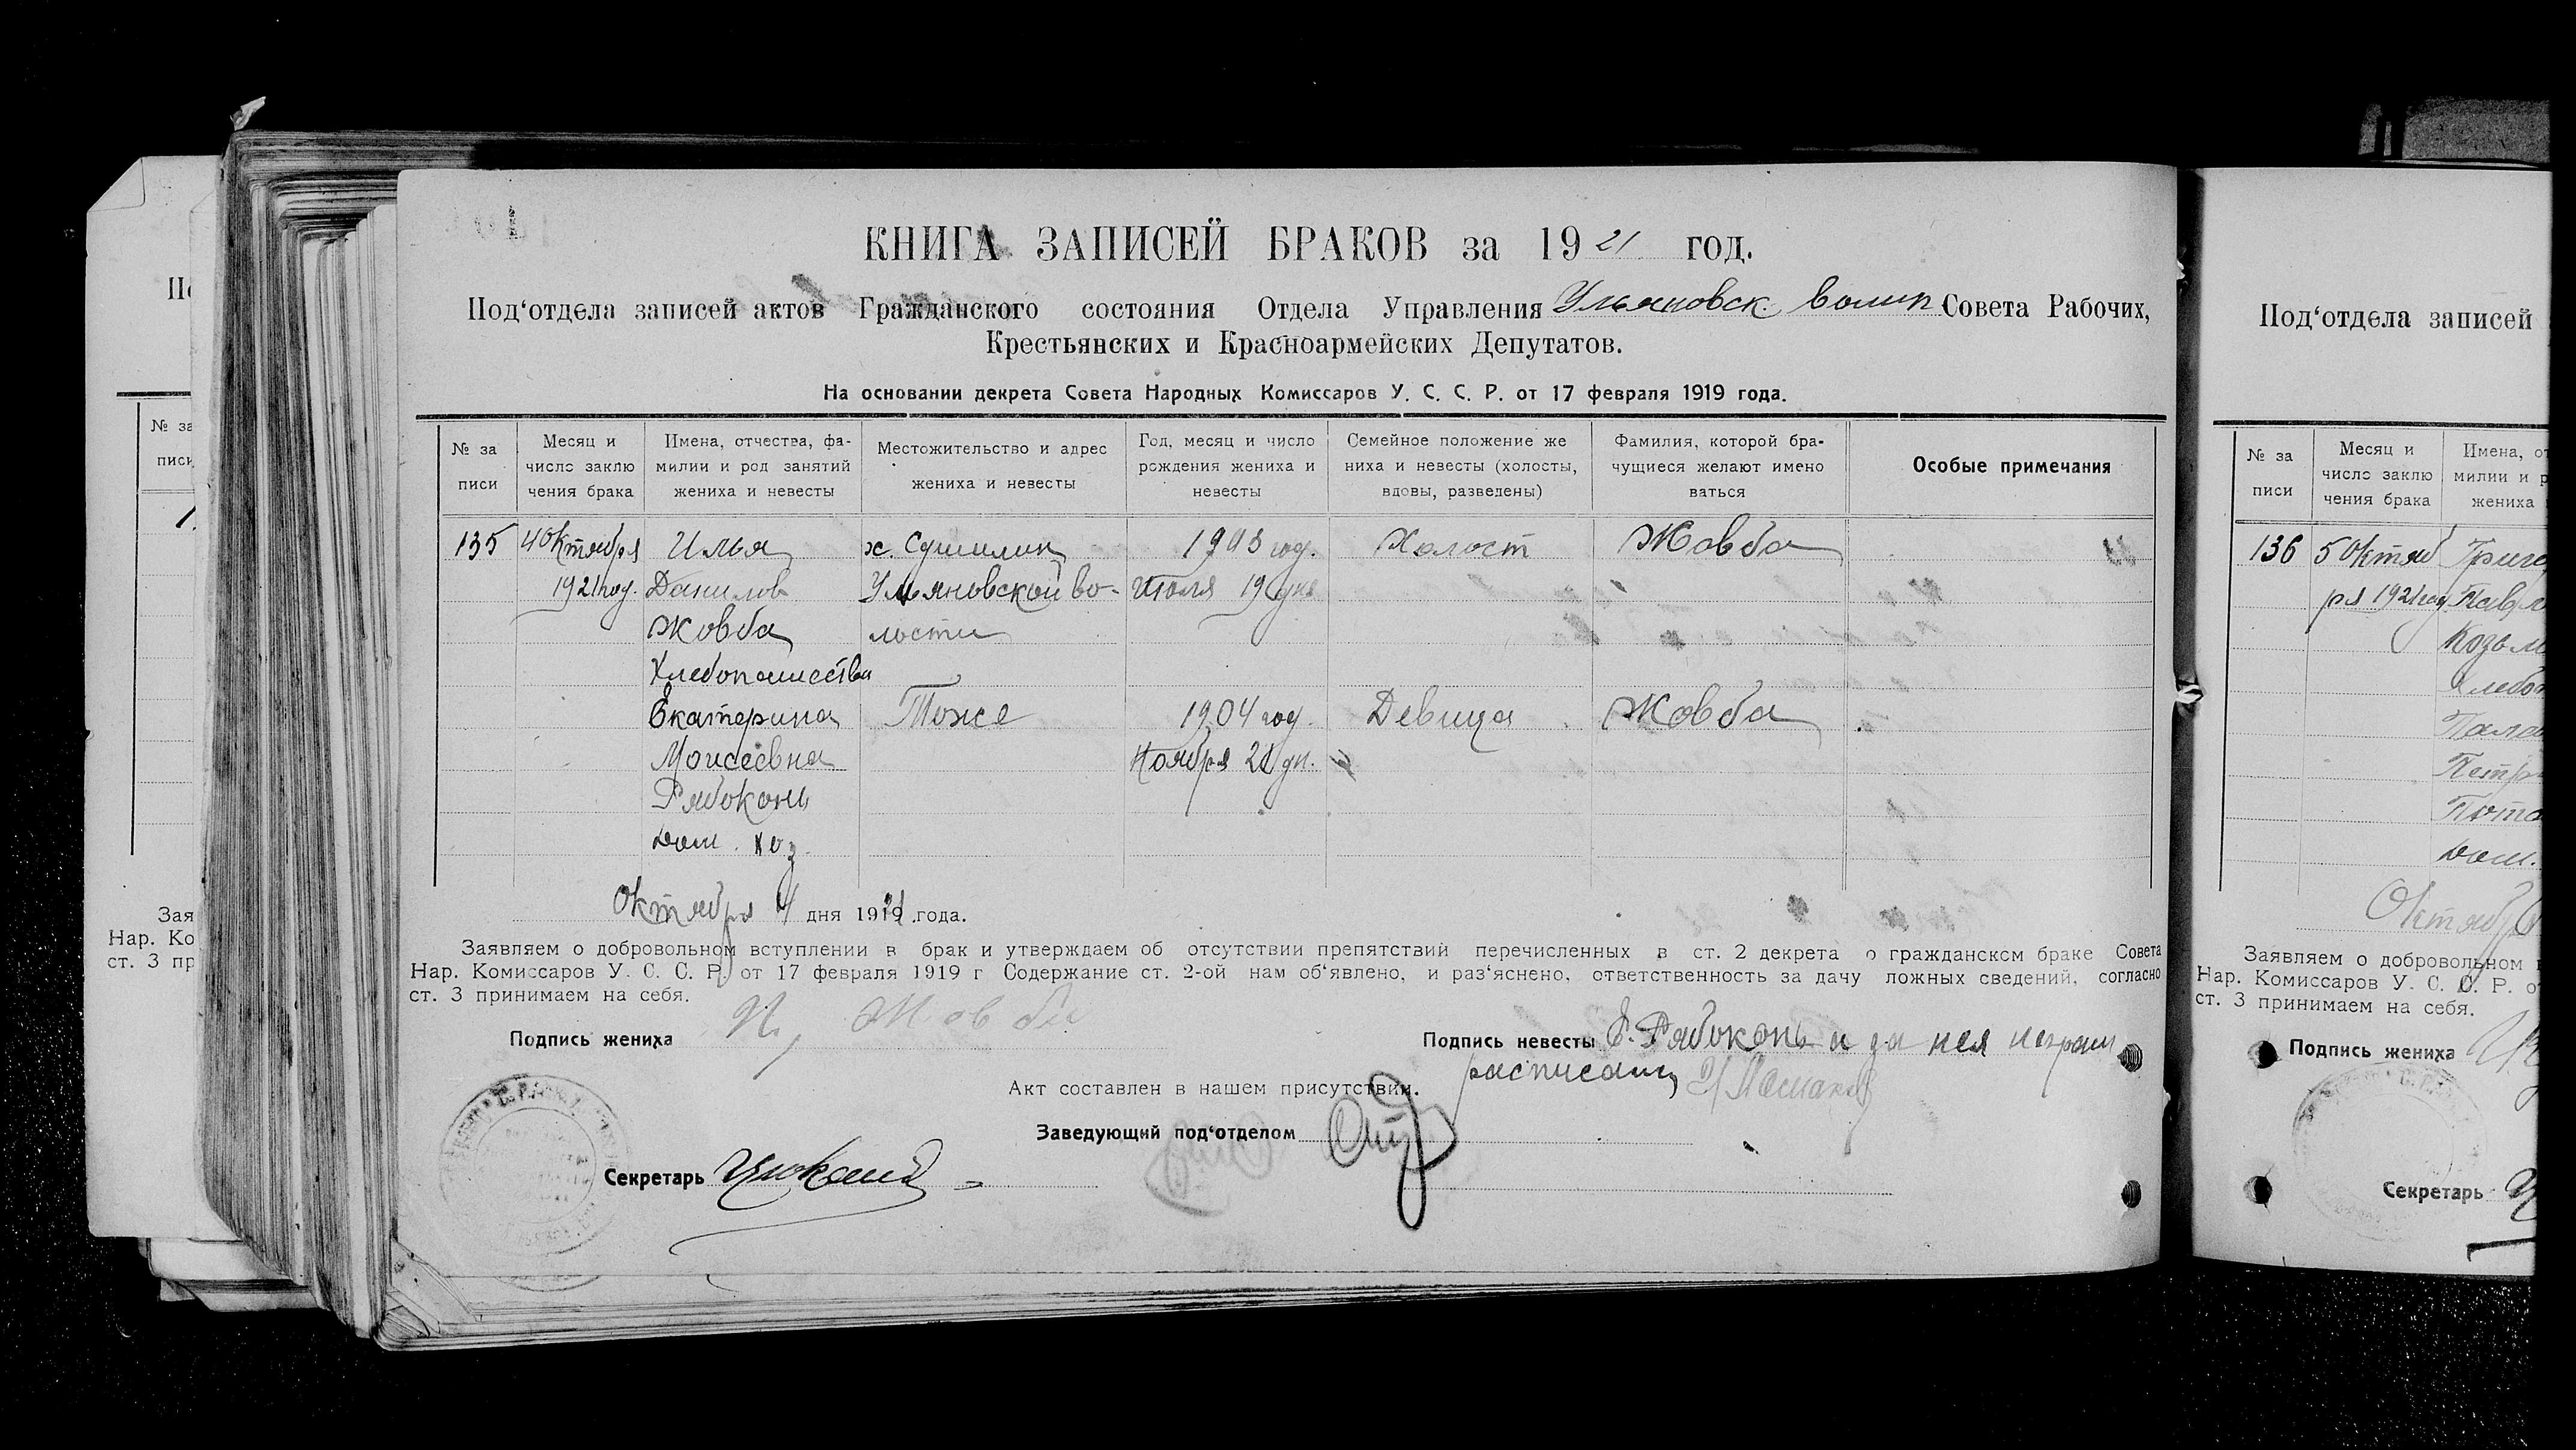 КНИГА ЗАПИСЕЙ БРАКОВ за 1921 год.
Под‘отдела записей актов Гражданского состояния Отдела Управления Ульяновск. волисп Совета Рабочих,
Крестьянских и Красноармейских Депутатов.
На основании декрета Совета Народных Комиссаров У. С. С. Р. от 17 февраля 1919 года.
№ за писи
Месяц и число заклю чения брака
Имена, отчества, фа- милии и род занятий жениха и невесты
Местожительство и адрес жениха и невесты
Год, месяц и число рождения жениха и невесты
Семейное положение же ниха и невесты (холосты, вдовы, разведены)
Фамилия, которой бра- чущиеся желают имено ваться
Особые примечания
135 4 Октября Илья х. 1903 год. Холост Жовба
1921 год. Данилов Ульяновской во- Июля 19 дня
Жовба лости
Хлебопашества
Екатерина Тоже 1904 год. Девица Жовба
Моисеевна Ноября дн.
Рябоконь
Дом. хоз.
Октября 4 дня 1921 года.
Заявляем о добровольном вступлении в брак и утверждаем об отсутствии препятствий перечисленных в ст. 2 декрета о гражданском браке Совета
Нар. Комиссаров У. С. С. Р. от 17 февраля 1919 г Содержание ст. 2-ой нам об‘явлено, и раз‘яснено, ответственность за дачу ложных сведений, согласно
ст. 3 принимаем на себя.
Подпись жениха И. Жовба
Подпись невесты Е. Рябоконь а за нея неграм.
расписался
Акт составлен в нашем присутствии.
Заведующий под‘отделом
Секретарь
№ за
писи
Зая
Нар. Ко
ст. 3 пр
Под‘отдела записей
№ за писи
Месяц и число заклю чения брака
Имена, о
милии и р
жениха
136 5 Октяб Григо
ря 1921 год Павл
Козьм
Хлебо
Пала
Петр
Пота
Дом.
Октяб
Заявляем о добровольном
Нар. Комиссаров У. С. С. Р. о
ст. 3 принимаем на себя.
Подпись жениха
Секретарь